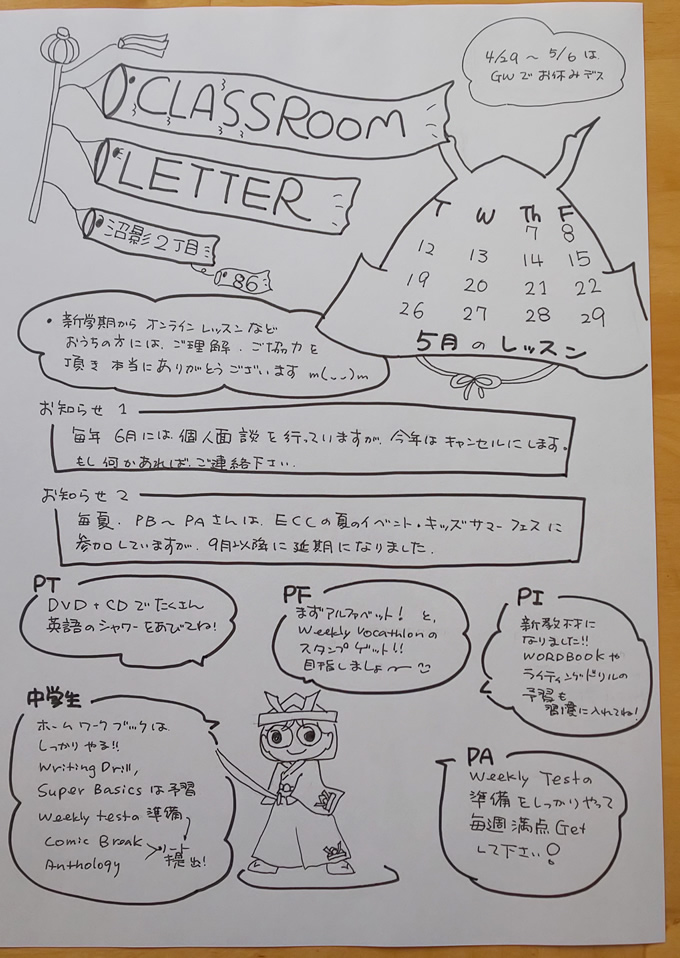 CLASSROOM
LETTER
沼影2丁目
86
4/29～5/6は
GWでお休みデス
T W Th F
7 8
12 13 14 15
19 20 21 22
26 27 28 29
5月のレッスン
・新学期から オンラインレッスンなど
おうちの方には、ご理解、ご協力を
頂き 本当にありがとうございます m(__)m
お知らせ 1
毎年 6月には、個人面談を行っていますが、今年はキャンセルにします。
もし何かあれば、ご連絡下さい.
お知らせ 2
毎夏、PB～PAさんは、ECCの夏のイベント・キッズサマーフェスに
参加していますが、9月以降に延期になりました.
PT
DVD+CDでたくさん
英語のシャワーをあびてね!
PF
まずアルファベット! と、
Weekly Vocathlonの
スタンプゲット!!
目指しましょ～
PI
新教材に
なりました!!
WORDBOOKや
ライティングドリルの
予習も
習慣に入れてね!
中学生
ホームワークブックは
しっかりやる!!
Writing Drill,
Super Basicsは予習
Weekly testの準備
Comic Break
Anthology
ノート
提出!
PA
Weekly Testの
準備をしっかりやって
毎週満点Get
して下さい!